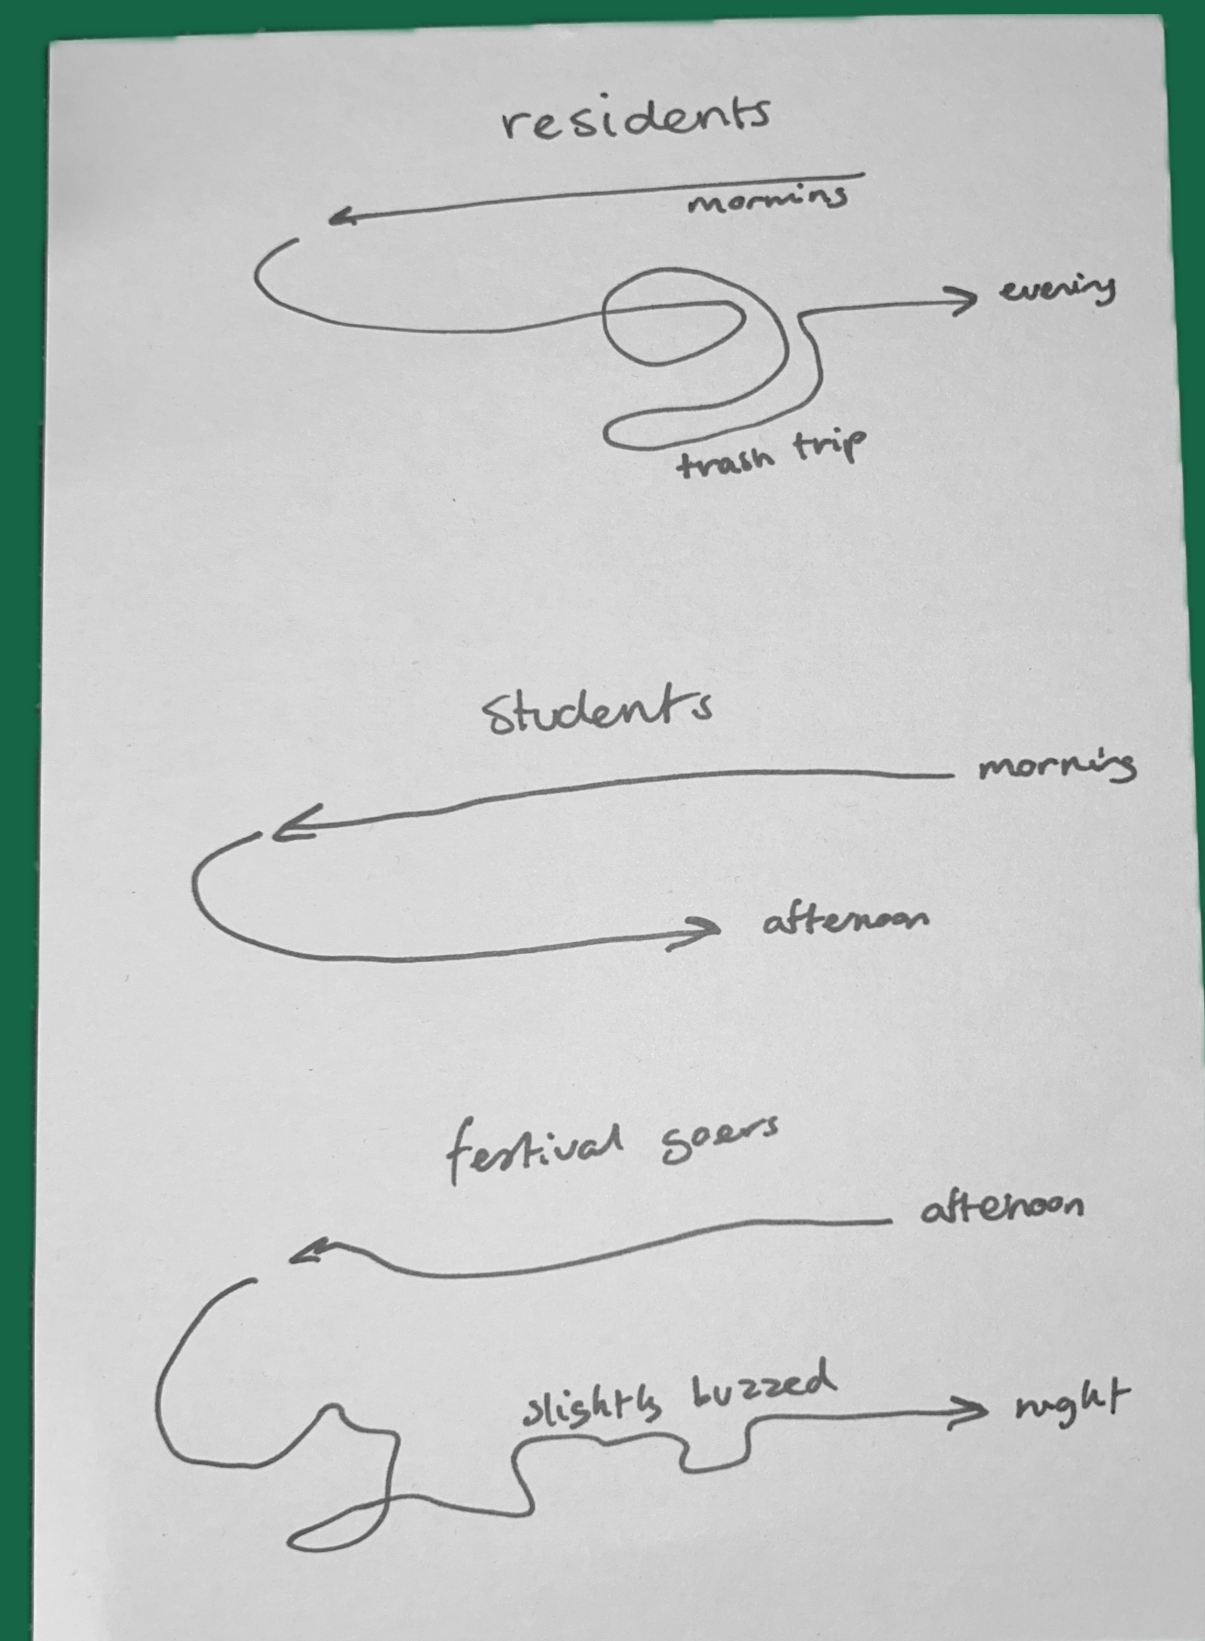 residents
morning
evening
trash trip
students
morning
afternoon
festival goers
afternoon
slightly buzzed
night